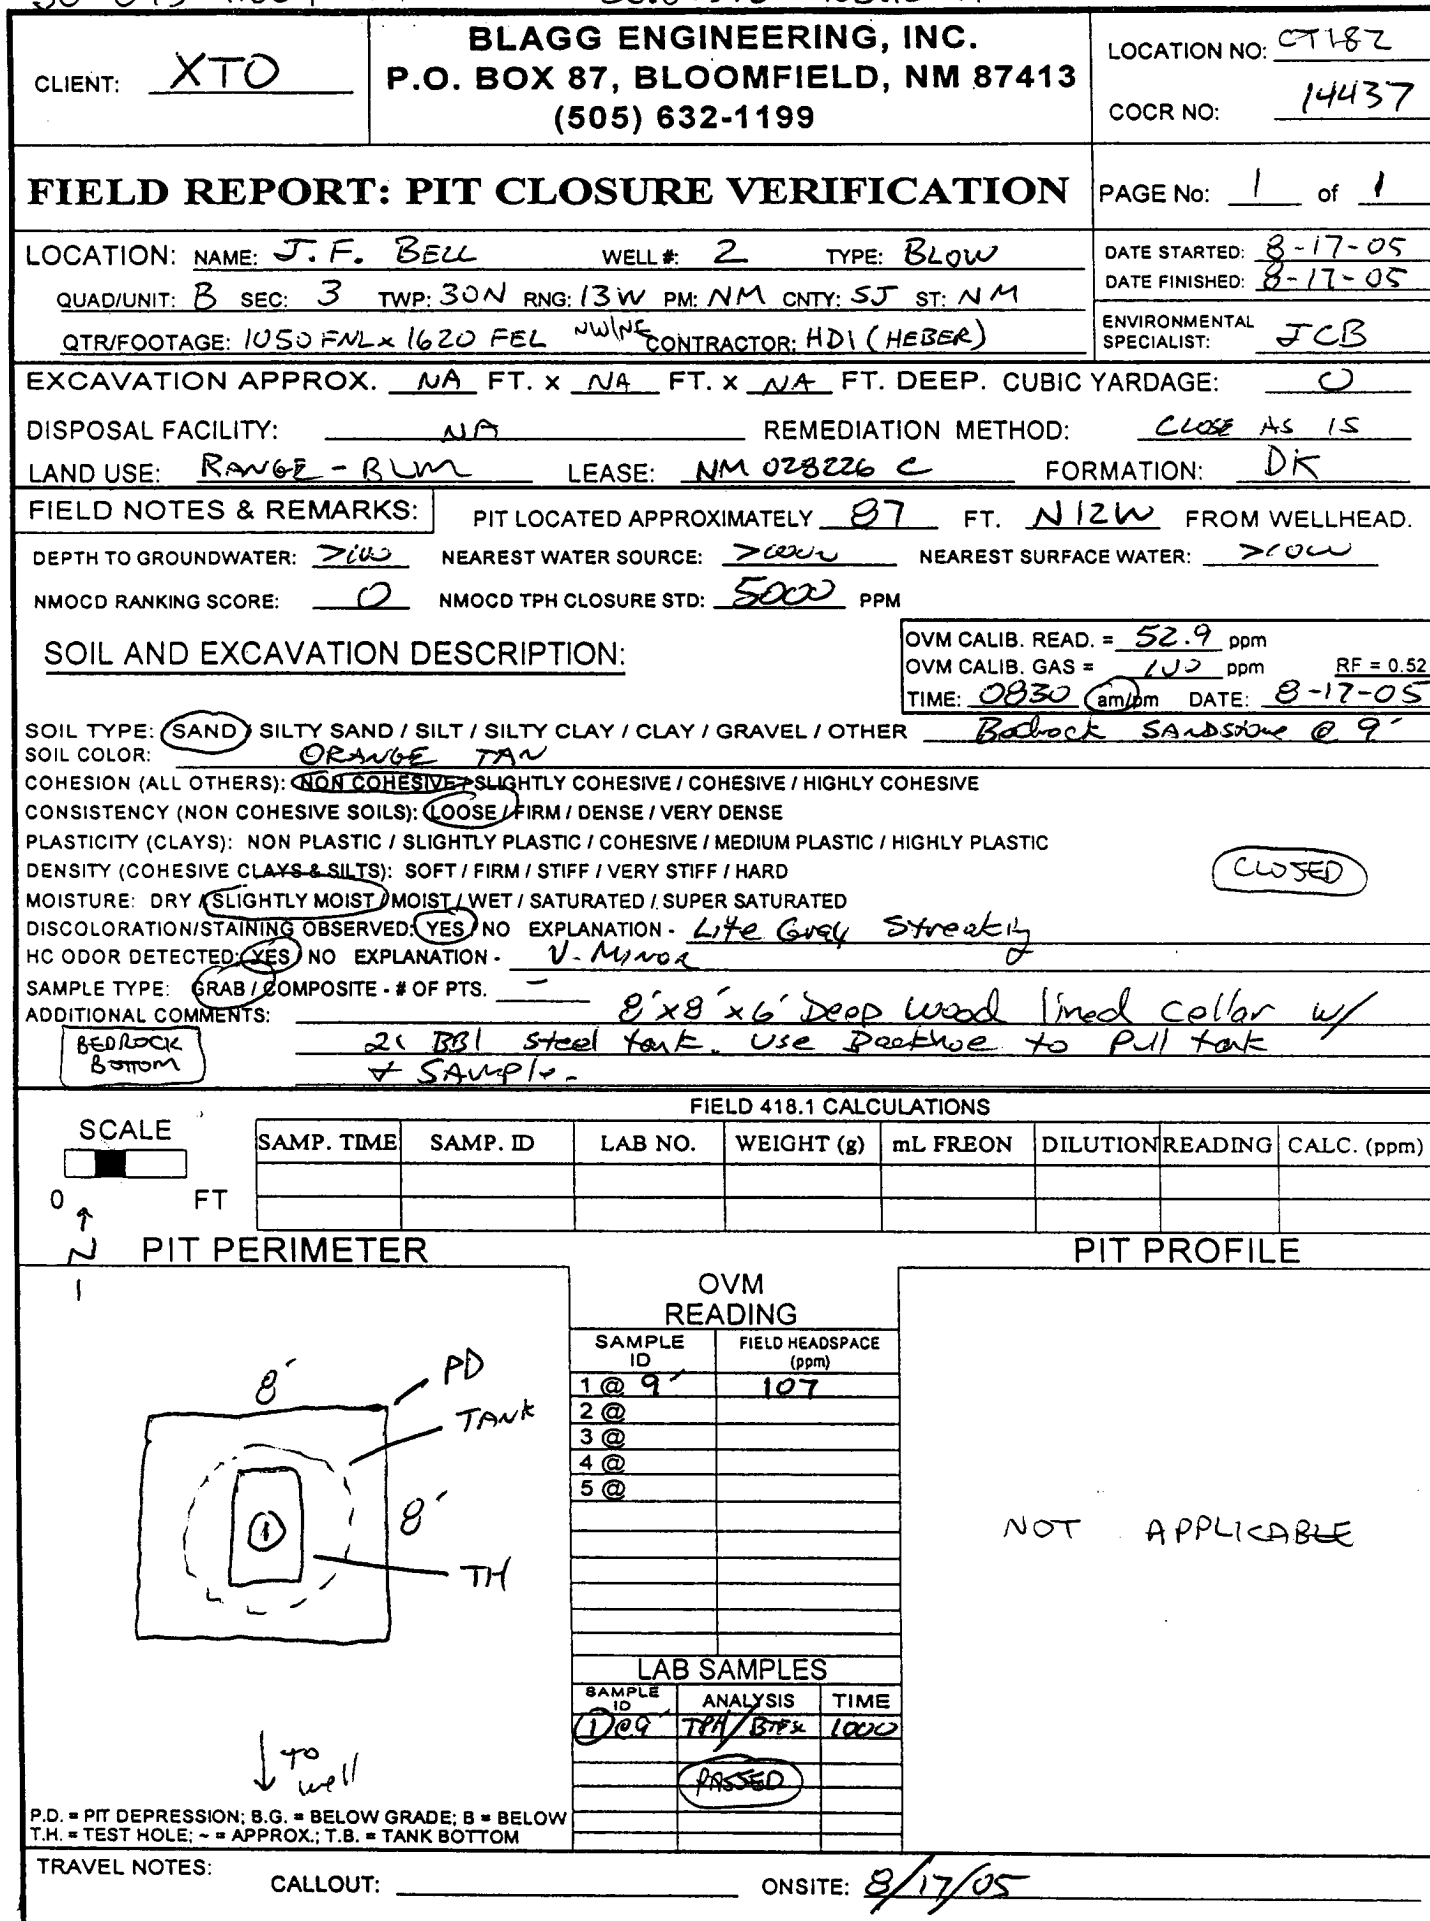 BLAGG ENGINEERING, INC.
P.O. BOX 87, BLOOMFIELD, NM 87413
(505) 632-1199
CLIENT: XTO
LOCATION NO: CT182
COCR NO: 14437
FIELD REPORT: PIT CLOSURE VERIFICATION
PAGE No: 1 of 1
LOCATION: NAME: J. F. BELL WELL #: 2 TYPE: BLOW
QUAD/UNIT: B SEC: 3 TWP: 30N RNG: 13W PM: NM CNTY: SJ ST: NM
QTR/FOOTAGE: 1050 FNL x 1620 FEL NW/NE CONTRACTOR: HDI (HEBER)
DATE STARTED: 8-17-05
DATE FINISHED: 8-17-05
ENVIRONMENTAL SPECIALIST: JCB
EXCAVATION APPROX. NA FT. x NA FT. x NA FT. DEEP. CUBIC YARDAGE: 0
DISPOSAL FACILITY: NA REMEDIATION METHOD: CLOSE AS IS
LAND USE: RANGE - BLM LEASE: NM 028226 C FORMATION: DK
FIELD NOTES & REMARKS: PIT LOCATED APPROXIMATELY 87 FT. N12W FROM WELLHEAD.
DEPTH TO GROUNDWATER: >100 NEAREST WATER SOURCE: >1000 NEAREST SURFACE WATER: >1000
NMOCD RANKING SCORE: 0 NMOCD TPH CLOSURE STD: 5000 PPM
SOIL AND EXCAVATION DESCRIPTION:
OVM CALIB. READ. = 52.9 ppm
OVM CALIB. GAS = 100 ppm RF = 0.52
TIME: 0830 am/pm DATE: 8-17-05
SOIL TYPE: SAND / SILTY SAND / SILT / SILTY CLAY / CLAY / GRAVEL / OTHER Bedrock SANDstone @ 9'
SOIL COLOR: ORANGE TAN
COHESION (ALL OTHERS): NON COHESIVE / SLIGHTLY COHESIVE / COHESIVE / HIGHLY COHESIVE
CONSISTENCY (NON COHESIVE SOILS): LOOSE / FIRM / DENSE / VERY DENSE
PLASTICITY (CLAYS): NON PLASTIC / SLIGHTLY PLASTIC / COHESIVE / MEDIUM PLASTIC / HIGHLY PLASTIC
DENSITY (COHESIVE CLAYS & SILTS): SOFT / FIRM / STIFF / VERY STIFF / HARD
CLOSED
MOISTURE: DRY / SLIGHTLY MOIST / MOIST / WET / SATURATED / SUPER SATURATED
DISCOLORATION/STAINING OBSERVED: YES / NO EXPLANATION - Lite Gray Streaking
HC ODOR DETECTED: YES / NO EXPLANATION - V. MINOR
SAMPLE TYPE: GRAB / COMPOSITE - # OF PTS. -
ADDITIONAL COMMENTS: 8'x8'x6' Deep wood lined cellar w/
BEDROCK BOTTOM
21 BBl steel tank. Use Backhoe to Pull tank
+ SAMple.
FIELD 418.1 CALCULATIONS
SCALE
0 FT
SAMP. TIME SAMP. ID LAB NO. WEIGHT (g) mL FREON DILUTION READING CALC. (ppm)
N
PIT PERIMETER
PIT PROFILE
OVM
READING
SAMPLE ID FIELD HEADSPACE (ppm)
1 @ 9' 107
2 @
3 @
4 @
5 @
8'
PD
TANK
8'
1
TH
NOT APPLICABLE
LAB SAMPLES
SAMPLE ID ANALYSIS TIME
1@9' TPH/BTEX 1000
PASSED
TO well
P.D. = PIT DEPRESSION; B.G. = BELOW GRADE; B = BELOW
T.H. = TEST HOLE; ~ = APPROX.; T.B. = TANK BOTTOM
TRAVEL NOTES: CALLOUT: ONSITE: 8/17/05